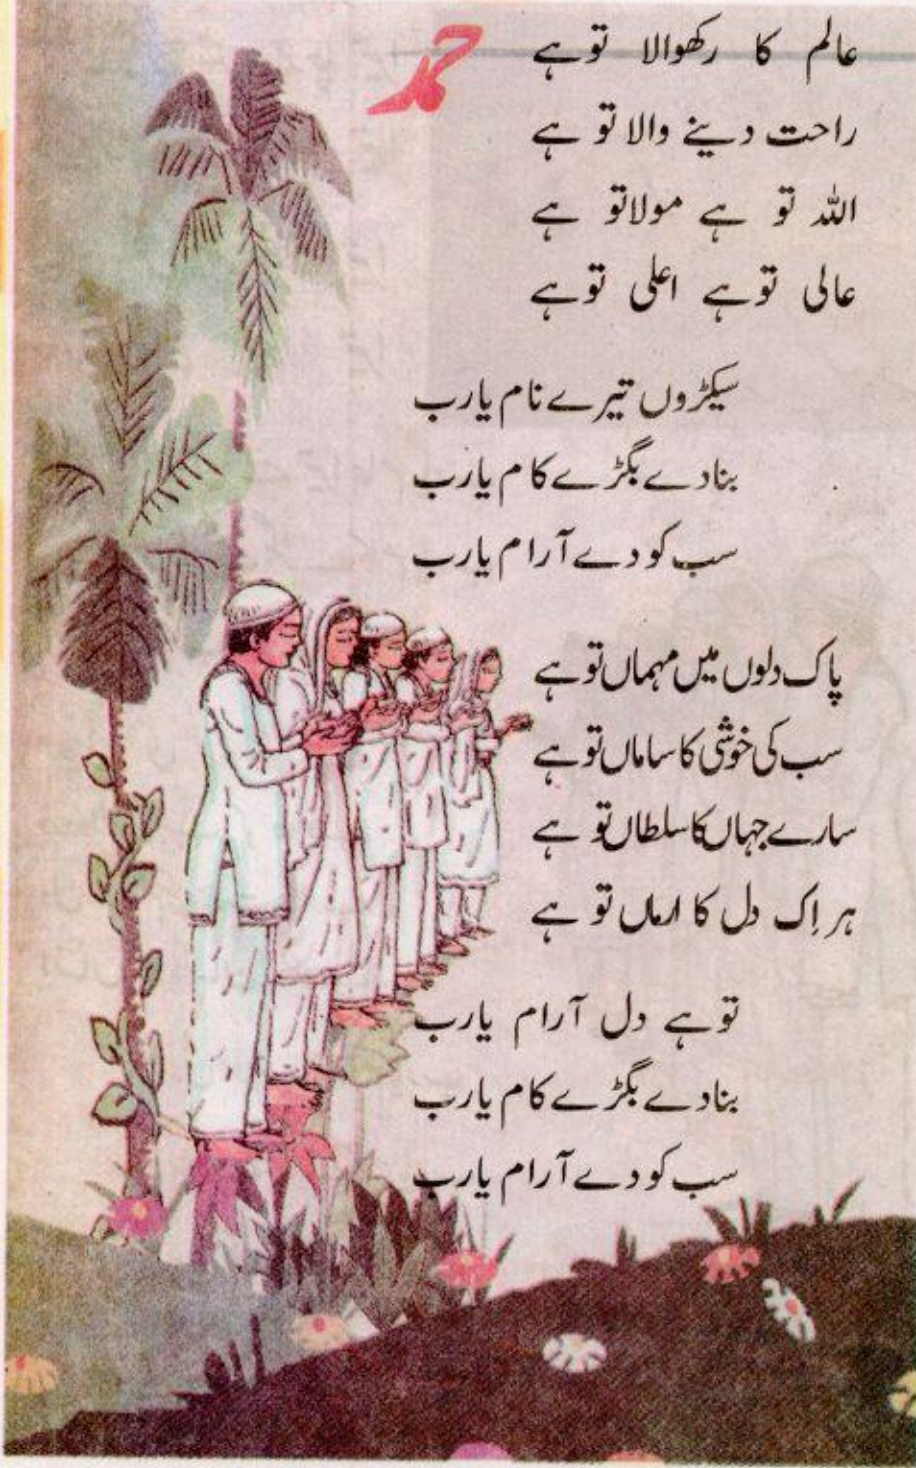 حمد
عالم کا رکھوالا توہے
راحت دینے والا تو ہے
اللہ تو ہے مولاتو ہے
عالی توہے اعلیٰ توہے
سیکڑوں تیرے نام یارب
بنادے بگڑے کام یارب
سب کو دے آرام یارب
پاک دلوں میں مہماں توہے
سب کی خوشی کا ساماں توہے
سارے جہاں کا سلطاں تو ہے
ہر اِک دل کا ارماں تو ہے
توہے دل آرام یارب
بنادے بگڑے کام یارب
سب کو دے آرام یارب